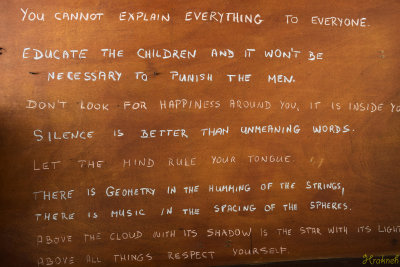 YOU CANNOT EXPLAIN EVERYTHING TO EVERYONE.
EDUCATE THE CHILDREN AND IT WON'T BE
NECESSARY TO PUNISH THE MEN.
DON'T LOOK FOR HAPPINESS AROUND YOU, IT IS INSIDE YO
SILENCE IS BETTER THAN UNMEANING WORDS.
LET THE MIND RULE YOUR TONGUE.
THERE IS GEOMETRY IN THE HUMMING OF THE STRINGS,
THERE IS MUSIC IN THE SPACING OF THE SPHERES.
ABOVE THE CLOUD WITH ITS SHADOW IS THE STAR WITH ITS LIGH
ABOVE ALL THINGS RESPECT YOURSELF.